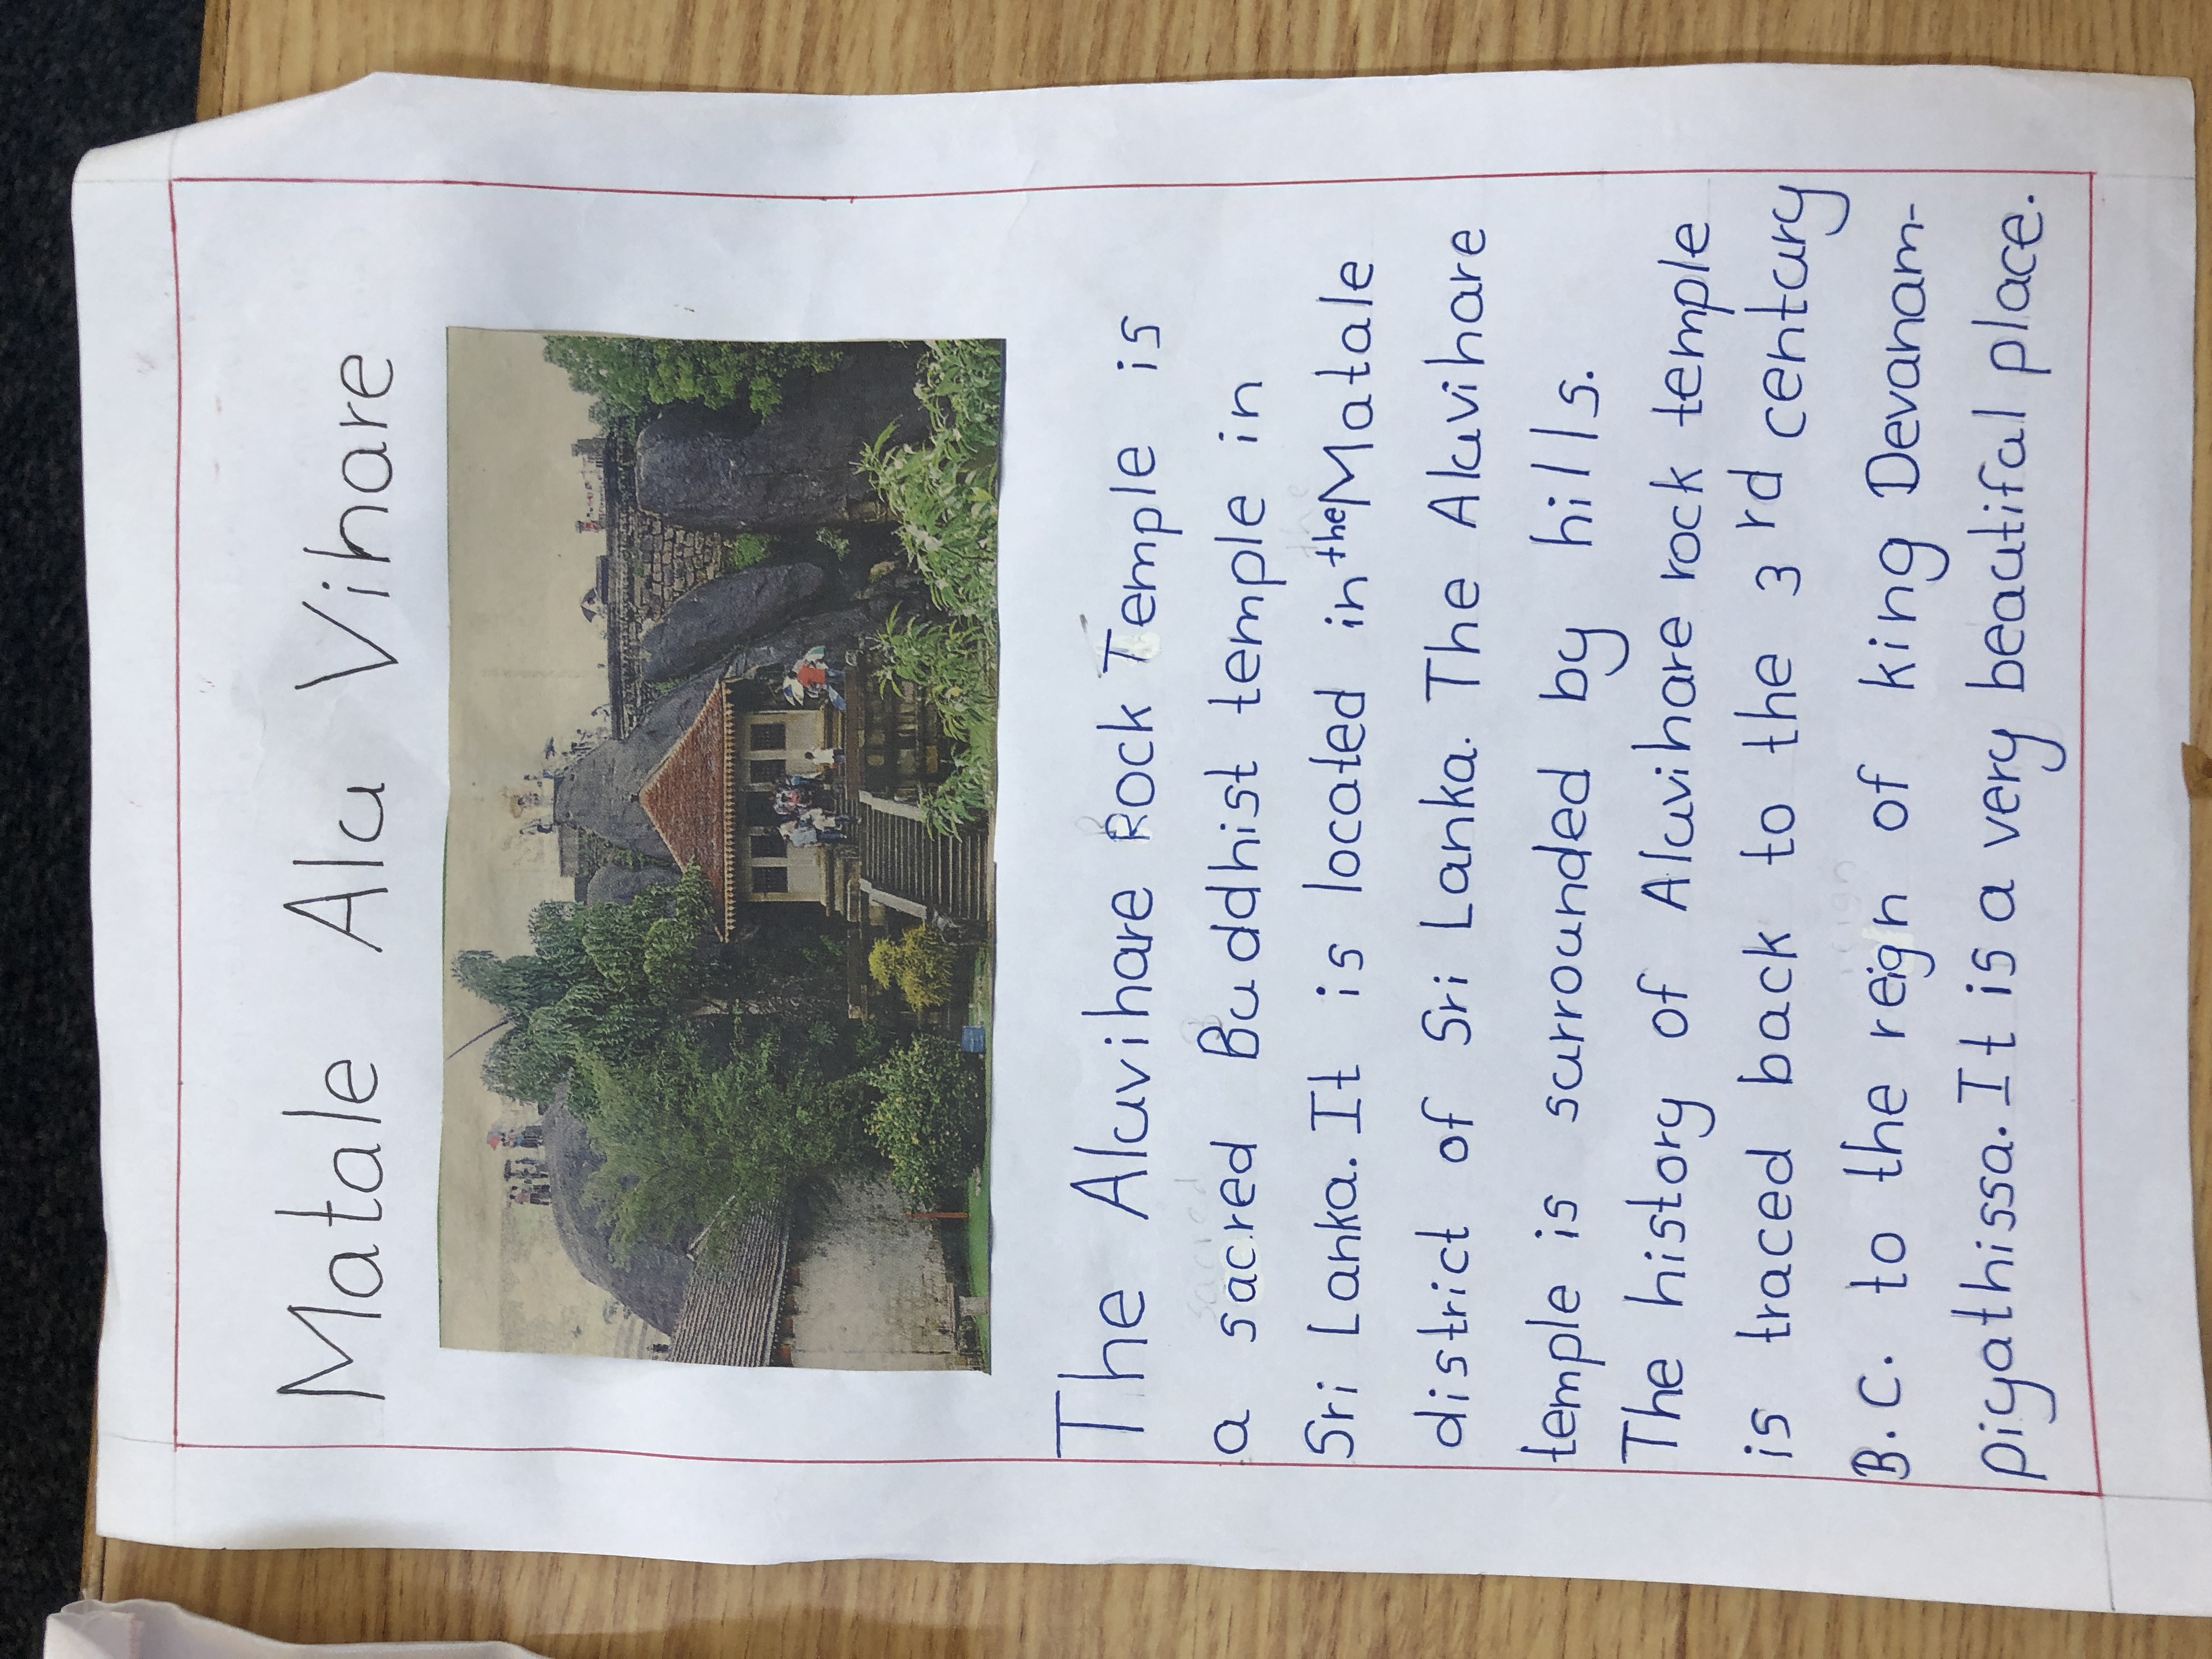 Matale Alu Vihare
The Aluvihare Rock Temple is
a sacred Buddhist temple in
Sri Lanka. It is located in the Matale
district of Sri Lanka. The Aluvihare
temple is surrounded by hills.
The history of Aluvihare rock temple
is traced back to the 3 rd century
B.C. to the reign of king Devanam-
piyathissa. It is a very beautiful place.